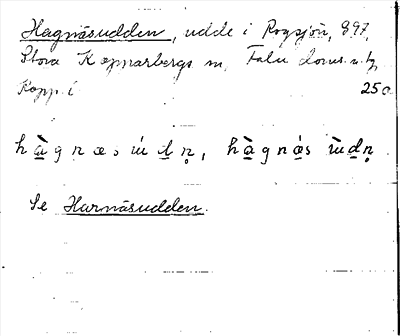 Hagnäsudden, udde i Rogsjön, 897,
Stora Kopparbergs sn, Falu doms.
Kopp. l 250
hàgnæs údn, hàgnás ùdn
Se Harnäsudden.